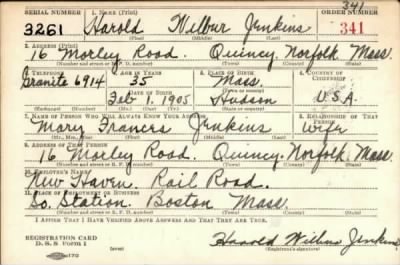 341
SERIAL NUMBER 1. NAME (Print) ORDER NUMBER
3261 Harold Wilbur Jenkins 341
(First) (Middle) (Last)
2. ADDRESS (Print)
16 Morley Road. Quincy. Norfolk. Mass.
(Number and street or R. F. D. number) (Town) (County) (State)
3. TELEPHONE 4. AGE IN YEARS 5. PLACE OF BIRTH 6. COUNTRY OF CITIZENSHIP
Granite 6914 35 Mass.
DATE OF BIRTH (Town or county)
Feb 1 1905 Hudson U.S.A.
(Exchange) (Number) (Mo.) (Day) (Yr.) (State or country)
7. NAME OF PERSON WHO WILL ALWAYS KNOW YOUR ADDRESS 8. RELATIONSHIP OF THAT PERSON
Mary Frances Jenkins Wife
(Mr., Mrs., Miss) (First) (Middle) (Last)
9. ADDRESS OF THAT PERSON
16 Morley Road. Quincy. Norfolk. Mass.
(Number and street or R. F. D. number) (Town) (County) (State)
10. EMPLOYER'S NAME
New Haven. Rail Road.
11. PLACE OF EMPLOYMENT OR BUSINESS
So. Station. Boston Mass.
(Number and street or R. F. D. number) (Town) (County) (State)
I AFFIRM THAT I HAVE VERIFIED ABOVE ANSWERS AND THAT THEY ARE TRUE.
REGISTRATION CARD
D. S. S. Form 1 Harold Wilbur Jenkins
(over) (Registrant's signature)